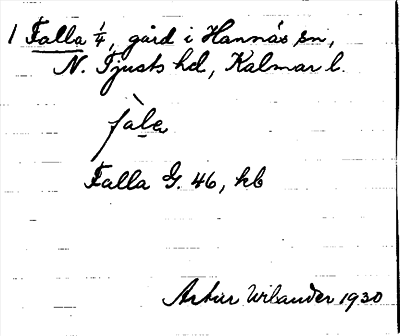 1 Falla 1/4, gård i Hannäs sn,
N. Tjusts hd, Kalmar l.
fàla
Falla G. 46, kb
Artur Urlander 1930